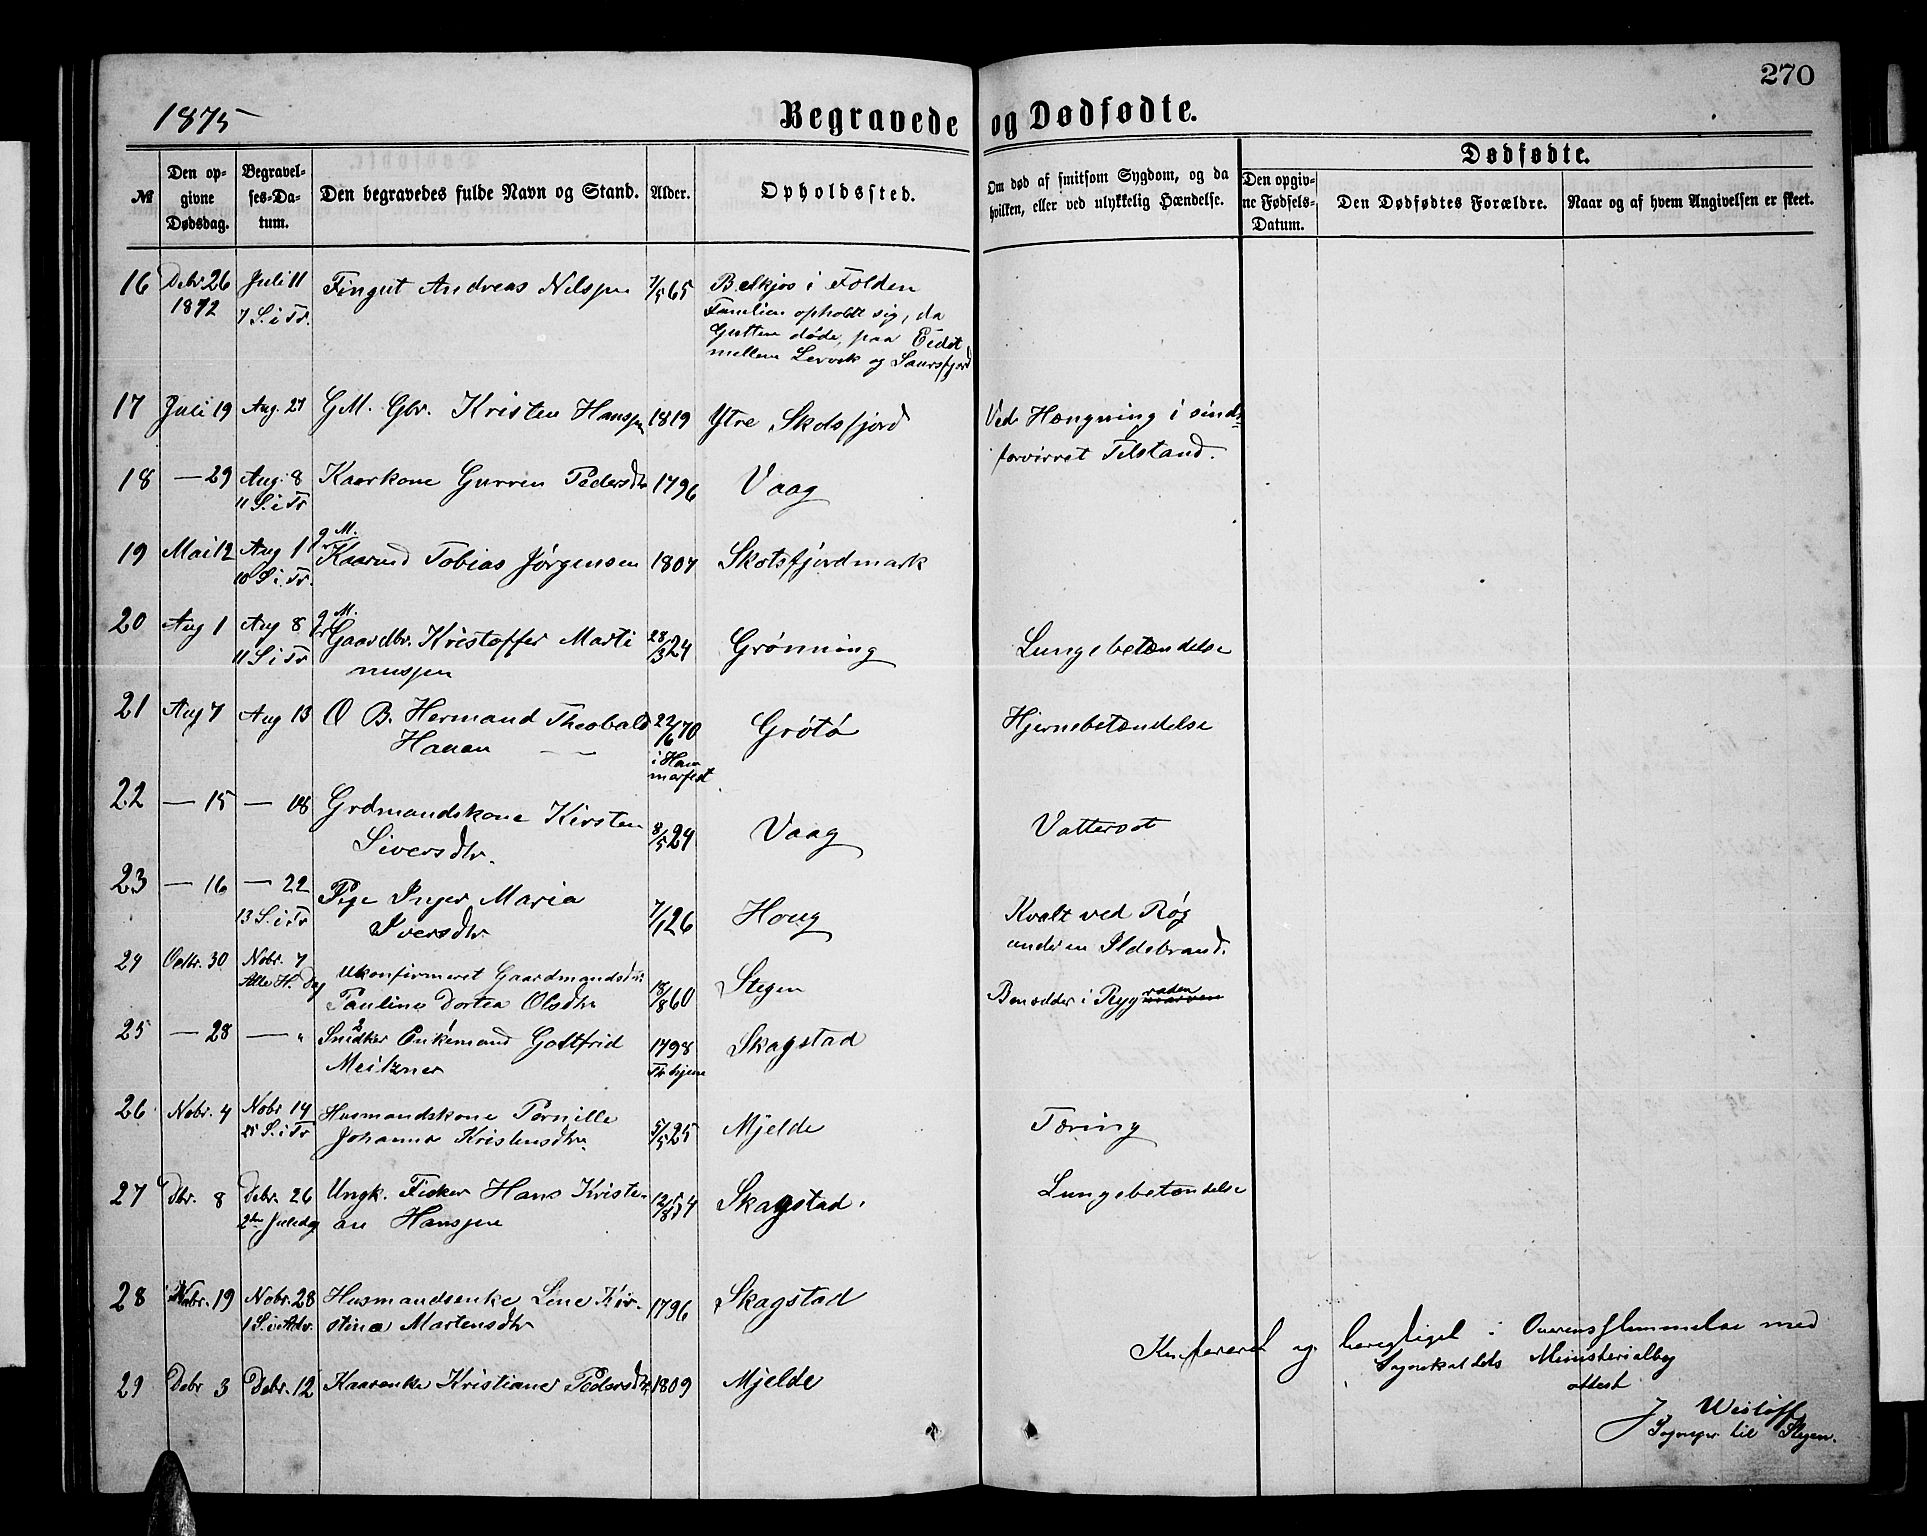 270
1875
Begravede og Dødfødte.
№
Den opgivne Dødsdag.
Begravelses-Datum.
Den begravedes fulde Navn og Stand.
Alder.
Opholdssted.
Om død af smitsom Sygdom, og da hvilken, eller ved ulykkelig Hændelse.
Dødfødte.
Den opgivne Fødsels-Datum.
Den Dødfødtes Forældre.
Naar og af hvem Angivelsen er skeet.
16 Debr 26 Juli 11 Fingut Andreas Nilssen 7/5 65 Belkjos i Folden
1872 7 S. i Tr. Familien opholdt sig, da
Gutten døde, paa Eidet
mellem Lervik og Saursfjord
17 Juli 19 Aug. 27 GM. Gbr. Kristen Hanssen 1819 Ytre Skotsfjord Ved Hængning i sinds=
forvirret Tilstand.
18 — 29 Aug. 8 Kaarkone Gurren Pedersdtr 1796 Vaag
11 S. i Tr
19 Mai 12 Aug 1 gM. Kaarmd Tobias Jørgensen 1807 Skotsfjordmark
10 S. i. Tr.
20 Aug 1 Aug 8 gM. Gaardbr. Kristoffer Marti 28/3 24 Grønning Lungebetændelse
11 S. i Tr nussen
21 Aug 7 Aug 13 O B. Hermand Theobald 22/6 70 Grøtø Hjernebetændelse
Hanan — i Ham
marfest
22 — 15 — 18 Grdmandskone Kirsten 8/5 24 Vaag Vattersot
Siversdtr.
23 — 16 — 22 Pige Inger Maria 7/1 26 Houg Kvalt ved Røg
13 S. i Tr Iversdtr. under en Ildebrand.
24 Octbr. 30 Nobr. 7 Ukonfirmeret Gaardmandsdtr 18/8 60 Stegen Benedder i Rygraden
Alle H. Dag Pauline Dortea Olsdtr
25 — 28 — " Snidker Enkemand Gottfrid 1798 Skagstad
Meitzner Thrhjem
26 Nobr. 4 Nobr 14 Husmandskone Pernille 5/5 25 Mjelde Tæring
25 S. i Tr Johanna Kristensdtr.
27 Dbr. 8 Debr. 26 Ungk. Fisker Hans Kristi 12/8 54 Skagstad. Lungebetændelse
2den Juledag an Hanssen
28 Nobr. 19 Nobr. 28 Husmandsenke Line Kir- 1796 Skagstad
1 S. i Adv. stina Martensdtr
29 Debr 3 Debr. 12 Kaarenke Kristiane Pedersdtr. 1809 Mjelde
Konfereret og berigtiget i Overensstemmelse med
Sognekaldets Ministerialbog
attest
J Wisløff
Sogneper til Stegen.